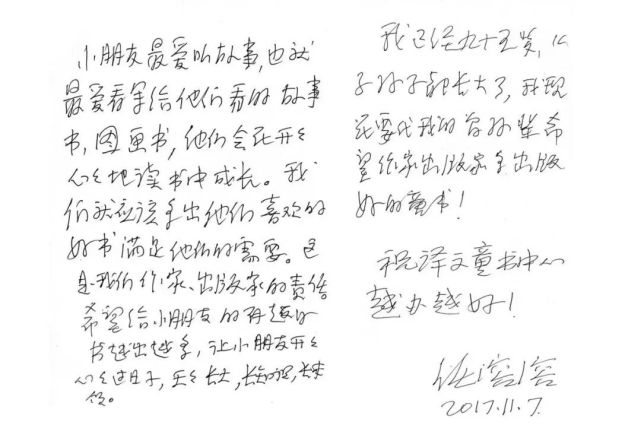 小朋友最爱听故事,也就
最爱看写给他们看的故事
书,图画书,他们会在开开
心心地读书中成长。我
们就应该多出他们喜欢的
好书满足他们的需要。这
是我们作家、出版家的责任
希望给小朋友的有趣的
书越出越多,让小朋友开开
心心过日子,天天长大,长知识,长本
领。
我已经九十五岁,儿
子孙子都长大了,我现
在要代我的曾孙辈希
望作家出版家多出版
好的童书!
祝译文童书中心
越办越好!
任溶溶
2017.11.7.